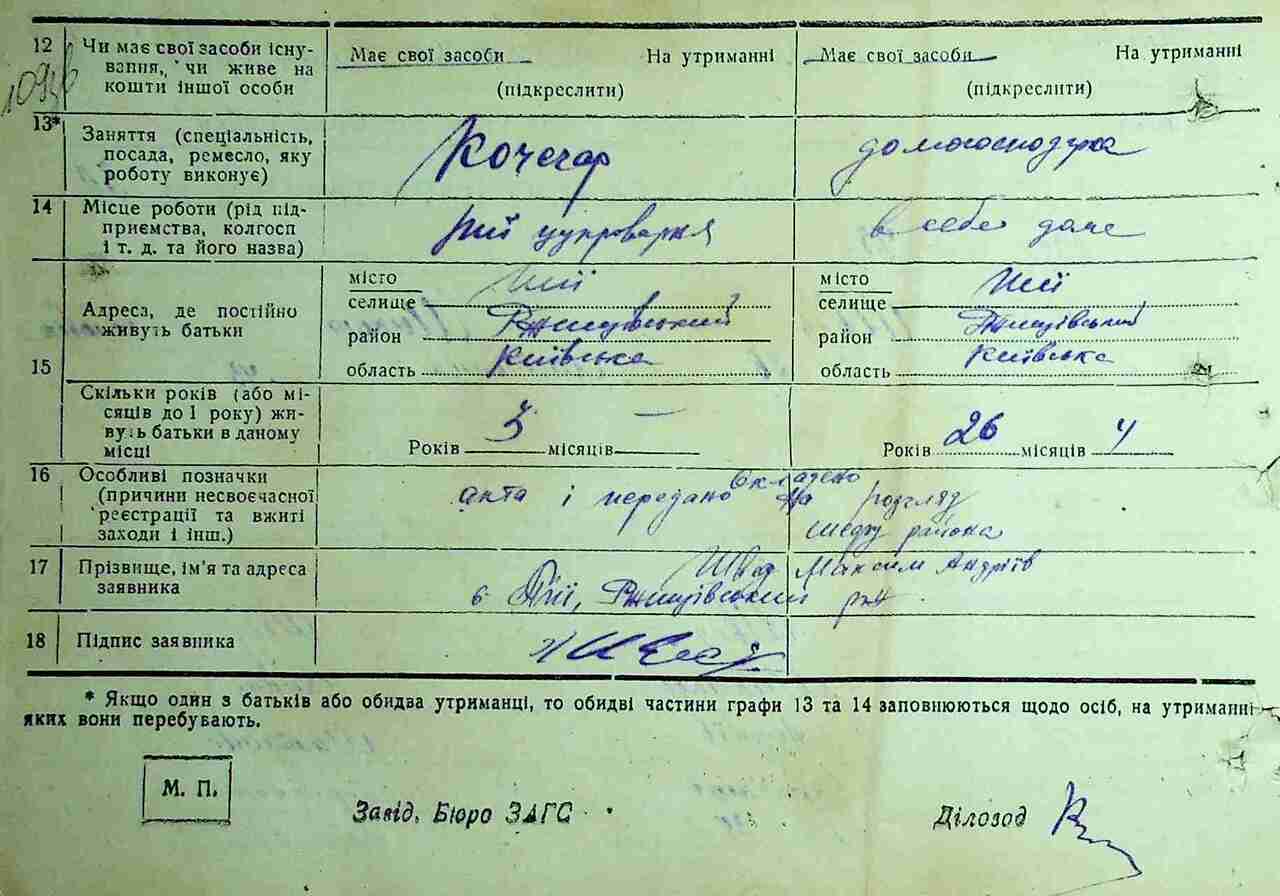 12 Чи має свої засоби існу- Має свої засоби На утриманні Має свої засоби На утриманні
вання, чи живе на
кошти іншої особи (підкреслити) (підкреслити)
13* Заняття (спеціальність, Кочегар домогосподарка
посада, ремесло, яку
роботу виконує)
14 Місце роботи (рід під- цукроварня в себе дома
приємства, колгосп
і т. д. та його назва)
15 Адреса, де постійно живуть батьки
місто місто
селище селище
район Ржищівський район Ржищівський
область Київська область Київська
Скільки років (або мі-
сяців до 1 року) жи-
вуть батьки в даному
місці
Років 3 місяців — Років 26 місяців 4
16 Особливі позначки складено
(причини несвоєчасної акта і передано на розгляд
реєстрації та вжиті
заходи і інш.) района
17 Прізвище, ім'я та адреса Швед Максим Андріїв
заявника в Ржищівський
18 Підпис заявника Швед
* Якщо один з батьків або обидва утриманці, то обидві частини графи 13 та 14 заповнюються щодо осіб, на утриманні
яких вони перебувають.
М. П.
Завід. Бюро ЗАГС Діловод